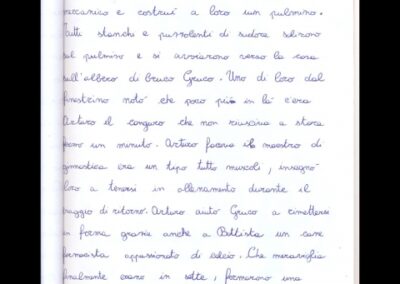 meccanico e costruì a loro un pulmino.
Tutti stanchi e puzzolenti di sudore salirono
sul pulmino e si avviarono verso la casa
sull'albero di bruco Gruco. Uno di loro dal
finestrino notò che poco più in là c'era
Arturo il canguro che non riusciva a stare
fermo un minuto. Arturo faceva il maestro di
ginnastica era un tipo tutto muscoli, insegnò
loro a tenersi in allenamento durante il
viaggio di ritorno. Arturo aiutò Gruco a rimettersi
in forma grazie anche a Battista un cane
farmacista appassionato di calcio. Che meraviglia
finalmente erano in sette, formarono una